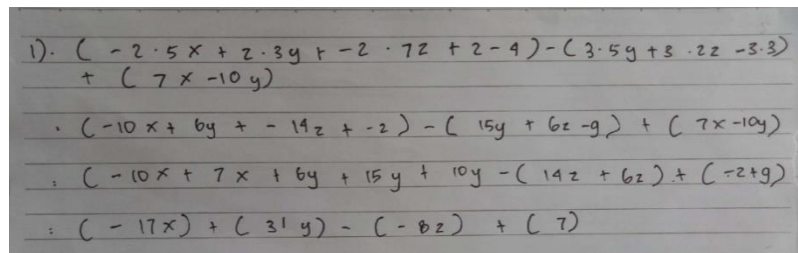 1). ( - 2 · 5x + 2 · 3y + -2 · 7z + 2 - 4) - ( 3 · 5y + 3 · 2z - 3·3)
+ ( 7x - 10y)
· (-10x + 6y + - 14z + -2 ) - ( 15y + 6z - 9) + ( 7x - 10y)
: ( - 10x + 7x + 6y + 15y + 10y - ( 14z + 6z ) + ( -2+9)
: ( - 17x ) + ( 31y ) - ( - 8z ) + ( 7)